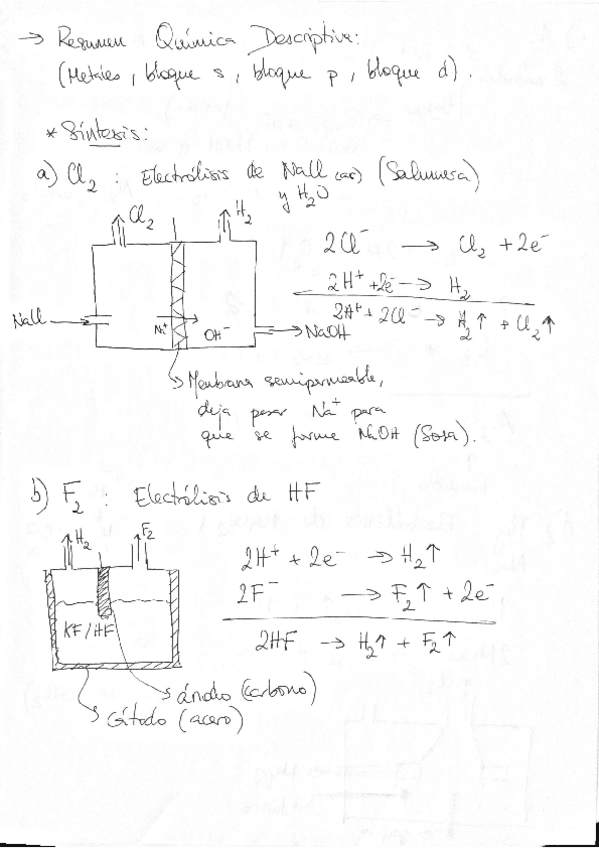 → Resumen Química Descriptiva:
(Metales, bloque s, bloque p, bloque d).
* Síntesis:
a) Cl₂ : Electrólisis de NaCl (ac) (Salmuera)
y H₂O
Cl₂
H₂
NaCl
Na⁺
OH⁻
NaOH
2Cl⁻ → Cl₂ + 2e⁻
2H⁺ + 2e⁻ → H₂
2H⁺ + 2Cl⁻ → H₂↑ + Cl₂↑
Membrana semipermeable,
deja pasar Na⁺ para
que se forme NaOH (Sosa).
b) F₂ : Electrólisis de HF
H₂
F₂
KF/HF
ánodo (carbono)
Cátodo (acero)
2H⁺ + 2e⁻ → H₂↑
2F⁻ → F₂↑ + 2e⁻
2HF → H₂↑ + F₂↑